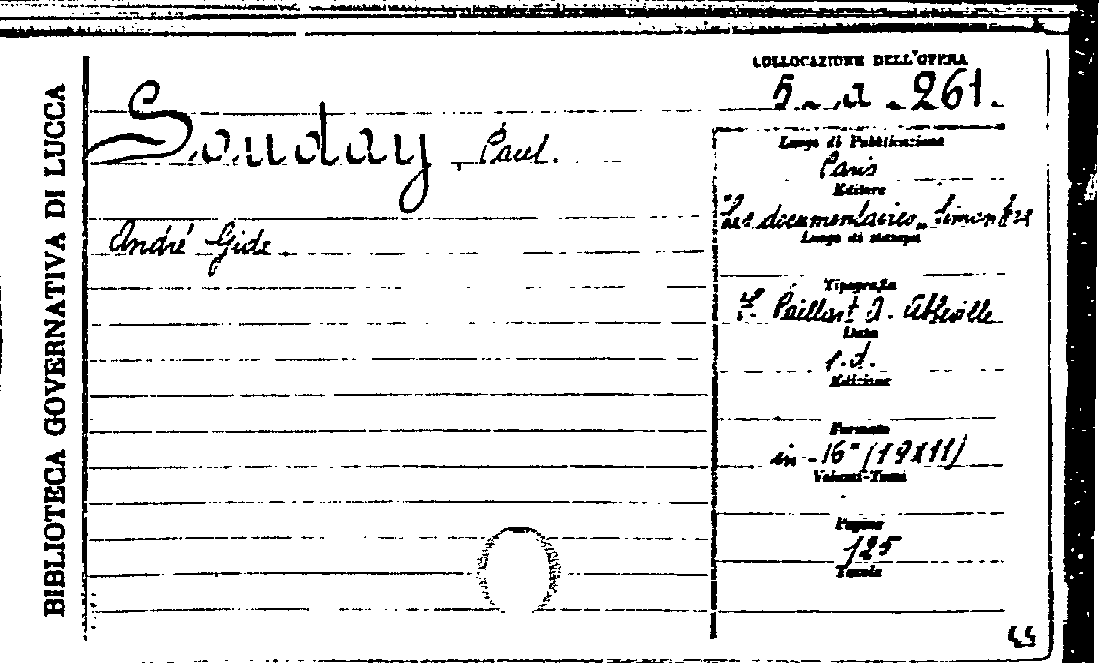 BIBLIOTECA GOVERNATIVA DI LUCCA
COLLOCAZIONE DELL'OPERA
5. a. 261.
Souday, Paul.
André Gide
Luogo di Pubblicazione
Paris
Editore
"Les documentaires" Simon Kra
Luogo di stampa
Tipografia
F. Paillart à Abbeville
Data
s.d.
Edizione
Formato
in-16° (19x11)
Volumi-Tomi
Pagine
125
Tavole